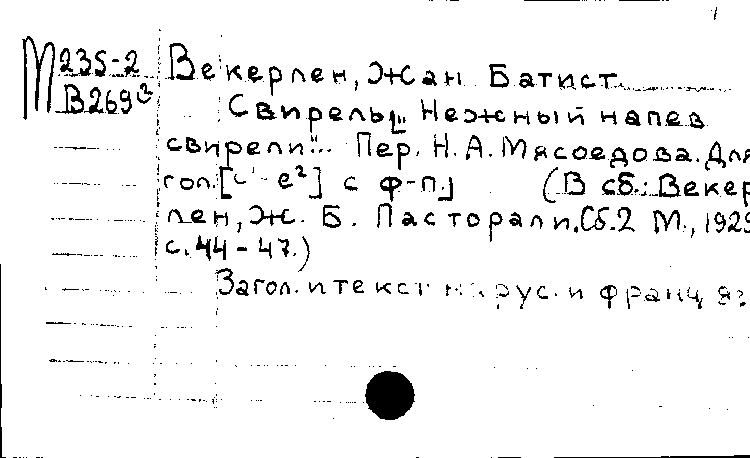 М 235-2 Векерлен, Жан Батист.
В 269² Свирель [„Нежный напев
свирели"... Пер. Н. А. Мясоедова. Для
гол. [c¹-e²] с ф-п.] (В сб.: Векер
лен, Ж. Б. Пасторали. Сб. 2 М., 1929
с. 44-47.)
Загол. и текст на рус. и франц яз